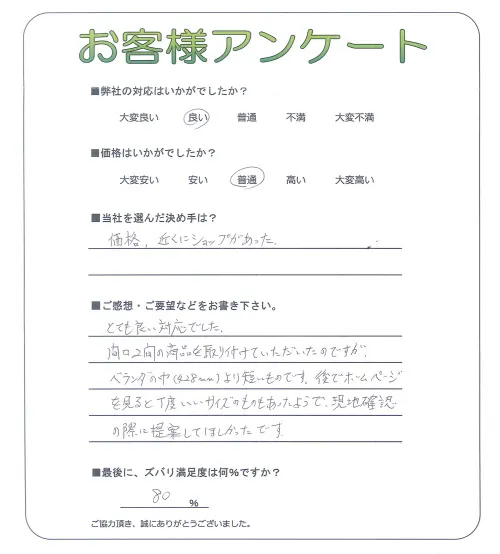 お客様アンケート
■弊社の対応はいかがでしたか？
大変良い 良い 普通 不満 大変不満
■価格はいかがでしたか？
大変安い 安い 普通 高い 大変高い
■当社を選んだ決め手は？
価格、近くにショップがあった.
■ご感想・ご要望などをお書き下さい。
とても良い対応でした.
間口2間の商品を取り付けていただいたのですが、
ベランダの巾(428mm)より短いものです. 後でホームページ
を見ると丁度いいサイズのものもあったようで、現地確認
の際に提案してほしかったです
■最後に、ズバリ満足度は何%ですか？
80 %
ご協力頂き、誠にありがとうございました。